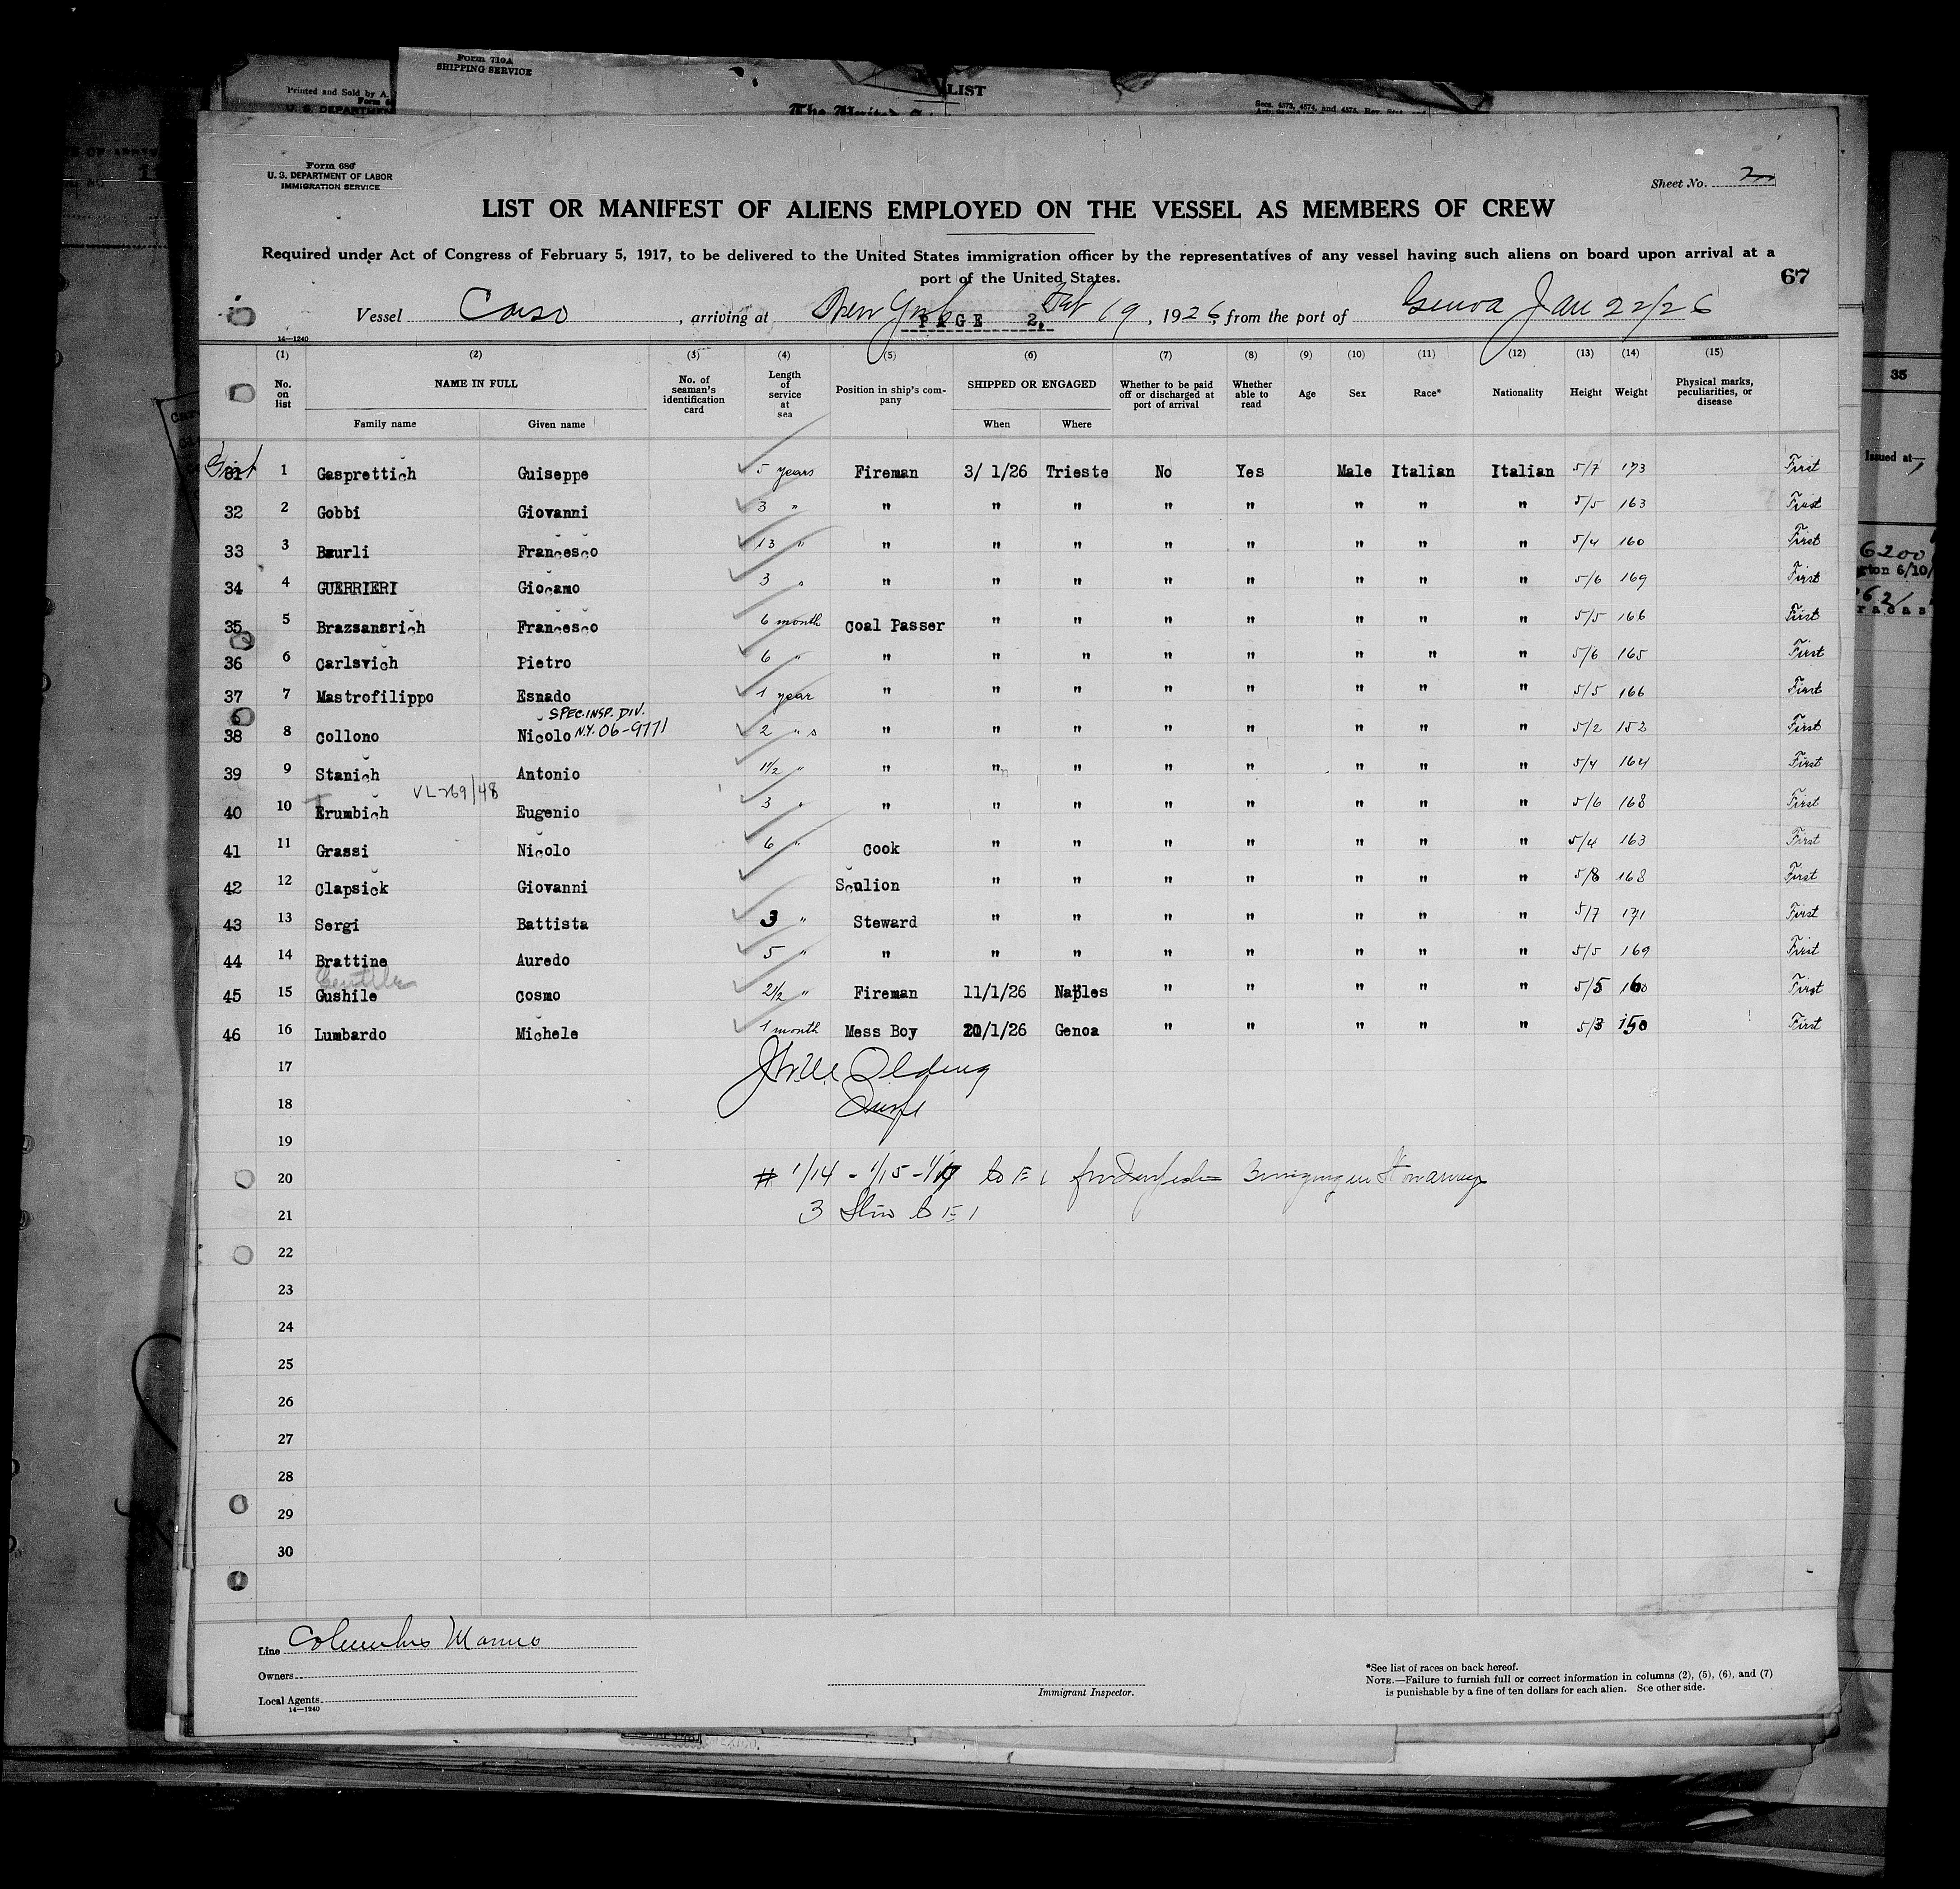 Form 710A
SHIPPING SERVICE
Printed and Sold by A.
U. S. DEPARTMEN
LIST
Form 680
U. S. DEPARTMENT OF LABOR
IMMIGRATION SERVICE
Sheet No. 2
LIST OR MANIFEST OF ALIENS EMPLOYED ON THE VESSEL AS MEMBERS OF CREW
Required under Act of Congress of February 5, 1917, to be delivered to the United States immigration officer by the representatives of any vessel having such aliens on board upon arrival at a
port of the United States.
67
Vessel Carso, arriving at New York Feb 19, 1926, from the port of Genoa Jan 22/26
PAGE 2.
14—1240
(1) (2) (3) (4) (5) (6) (7) (8) (9) (10) (11) (12) (13) (14) (15)
No. on list NAME IN FULL No. of seaman's identification card Length of service at sea Position in ship's company SHIPPED OR ENGAGED Whether to be paid off or discharged at port of arrival Whether able to read Age Sex Race* Nationality Height Weight Physical marks, peculiarities, or disease
Family name Given name When Where
31 1 Gasprettich Guiseppe 5 years Fireman 3/ 1/26 Trieste No Yes Male Italian Italian 5/7 173 First
32 2 Gobbi Giovanni 3 " " " " " " " " " 5/5 163 First
33 3 Baurli Francesco 13 " " " " " " " " " 5/4 160 First
34 4 GUERRIERI Giocamo 3 " " " " " " " " " 5/6 169 First
35 5 Brazsansrich Francesco 6 month Coal Passer " " " " " " " 5/5 166 First
36 6 Carlsvich Pietro 6 " " " " " " " " " 5/6 165 First
37 7 Mastrofilippo Esnado 1 year " " " " " " " " 5/5 166 First
SPEC. INSP. DIV.
38 8 Collono Nicolo N.Y. 06-9771 2 " s " " " " " " " " 5/2 152 First
39 9 Stanich Antonio 1½ " " " " " " " " " 5/4 164 First
VL-269/48
40 10 Erumbich Eugenio 3 " " " " " " " " " 5/6 168 First
41 11 Grassi Nicolo 6 " Cook " " " " " " " 5/4 163 First
42 12 Clapsick Giovanni Sculion " " " " " " " 5/8 168 First
43 13 Sergi Battista 3 " Steward " " " " " " " 5/7 171 First
44 14 Brattine Auredo 5 " " " " " " " " " 5/5 169 First
Gentile
45 15 Gushile Cosmo 2½ " Fireman 11/1/26 Naples " " " " " 5/5 160 First
46 16 Lumbardo Michele 1 month Mess Boy 20/1/26 Genoa " " " " " 5/3 150 First
17
18
19
20 # 1/14 - 1/15 -
21 3
22
23
24
25
26
27
28
29
30
Line
Owners
Local Agents
14—1240
Immigrant Inspector.
*See list of races on back hereof.
NOTE.—Failure to furnish full or correct information in columns (2), (5), (6), and (7)
is punishable by a fine of ten dollars for each alien. See other side.
35
Issued at
6200